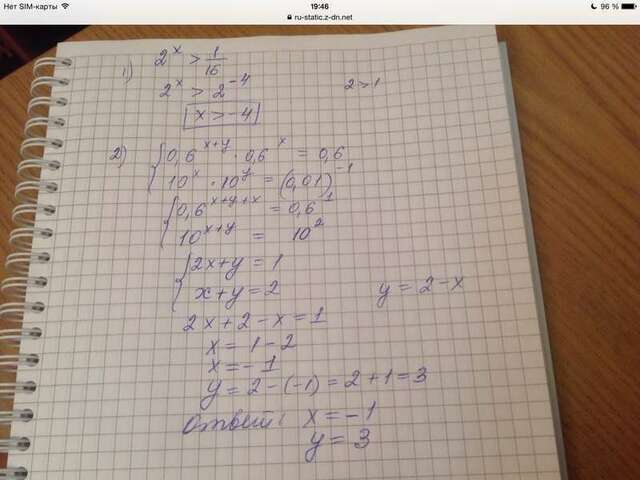 Нет SIM-карты 19:46 96 %
ru-static.z-dn.net
1) 2^x > 1/16
2^x > 2^-4 2 > 1
x > -4
2) 0,6^x+y · 0,6^x = 0,6
10^x · 10^y = (0,01)^-1
0,6^x+y+x = 0,6^1
10^x+y = 10^2
2x+y = 1
x+y = 2 y = 2-x
2x+2-x=1
x = 1-2
x = -1
y = 2-(-1) = 2+1=3
Ответ: x = -1
y = 3